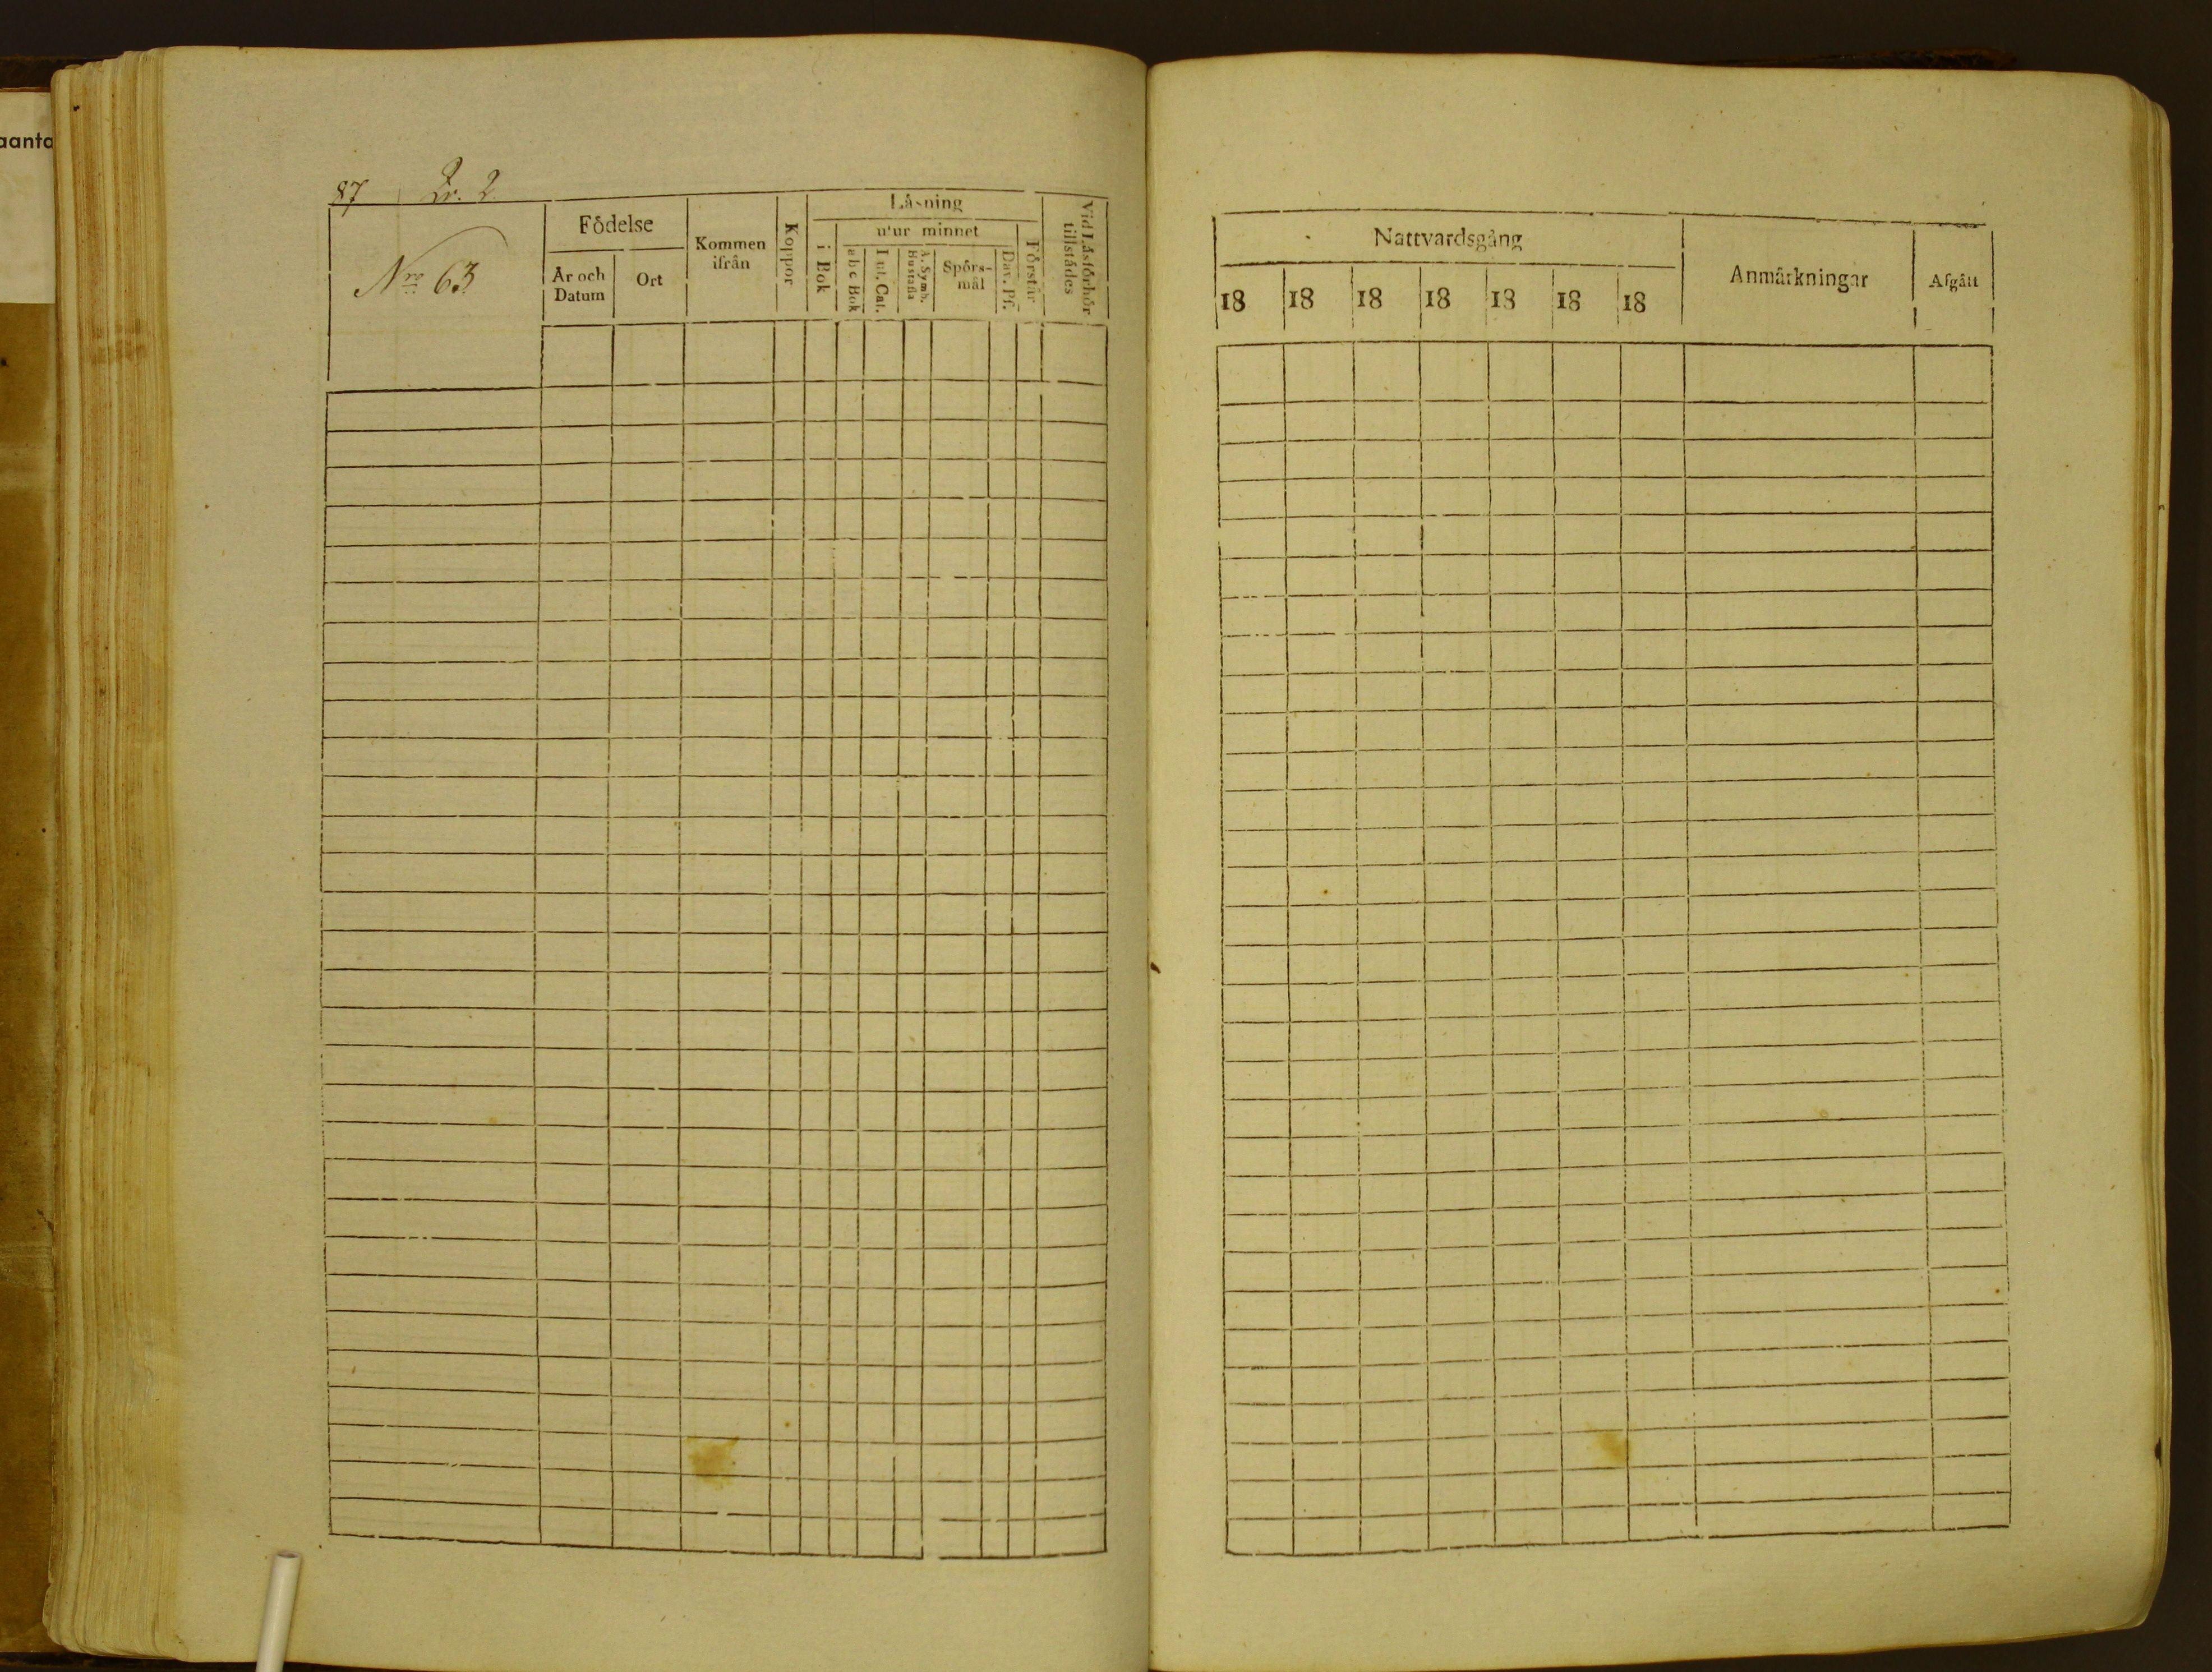 aanta
87 Qr. 2
Nro 63
Födelse
År och Datum
Ort
Kommen ifrån
Koppor
Läsning
i Bok
utur minnet
abc Bok
Lut. Cat.
A. Symb. Hustafla
Spörs-
mål
Dav. Ps.
Förstår
Vid Läsförhör tillstädes
Nattvardsgång
18 18 18 18 18 18 18
Anmärkningar
Afgått